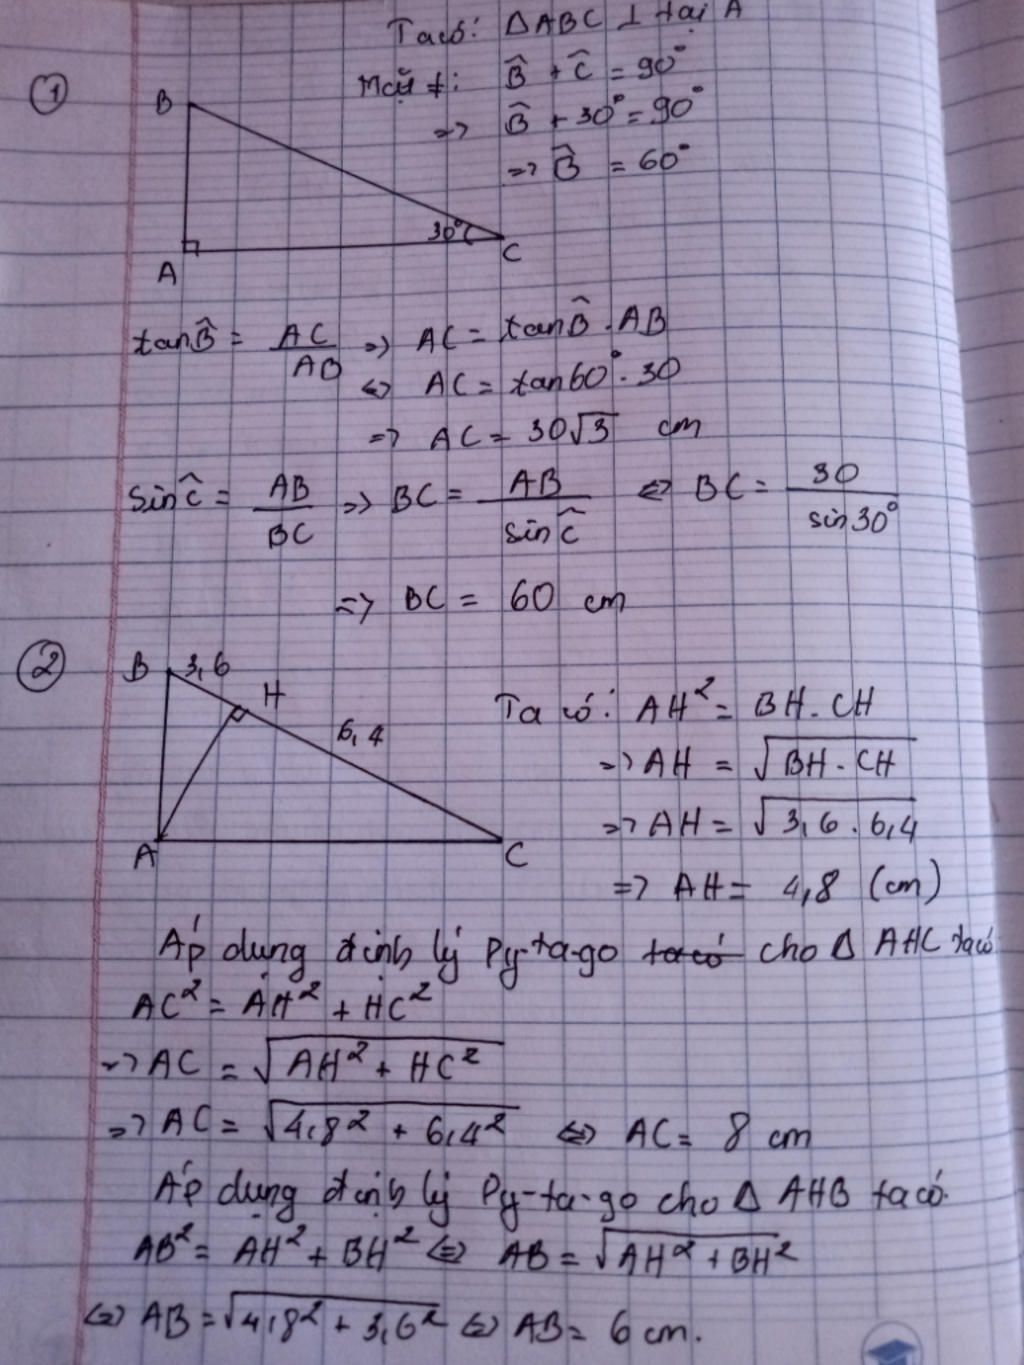 Ta có: Δ ABC ⊥ tại A
Mặt ≠: B̂ + Ĉ = 90°
=> B̂ + 30° = 90°
=> B̂ = 60°
①
B
30°
A
C
tan B̂ = AC/AB => AC = tan B̂ . AB
<=> AC = tan 60° . 30
=> AC = 30√3 cm
sin Ĉ = AB/BC => BC = AB/sin Ĉ <=> BC = 30/sin 30°
=> BC = 60 cm
②
B 3,6
H
6,4
A
C
Ta có: AH² = BH . CH
=> AH = √(BH . CH)
=> AH = √(3,6 . 6,4)
=> AH = 4,8 (cm)
Áp dụng định lý Py-ta-go ~~ta có~~ cho Δ AHC ta có
AC² = AH² + HC²
=> AC = √(AH² + HC²)
=> AC = √(4,8² + 6,4²) <=> AC = 8 cm
Áp dụng định lý Py-ta-go cho Δ AHB ta có.
AB² = AH² + BH² <=> AB = √(AH² + BH²)
<=> AB = √(4,8² + 3,6²) <=> AB = 6 cm.